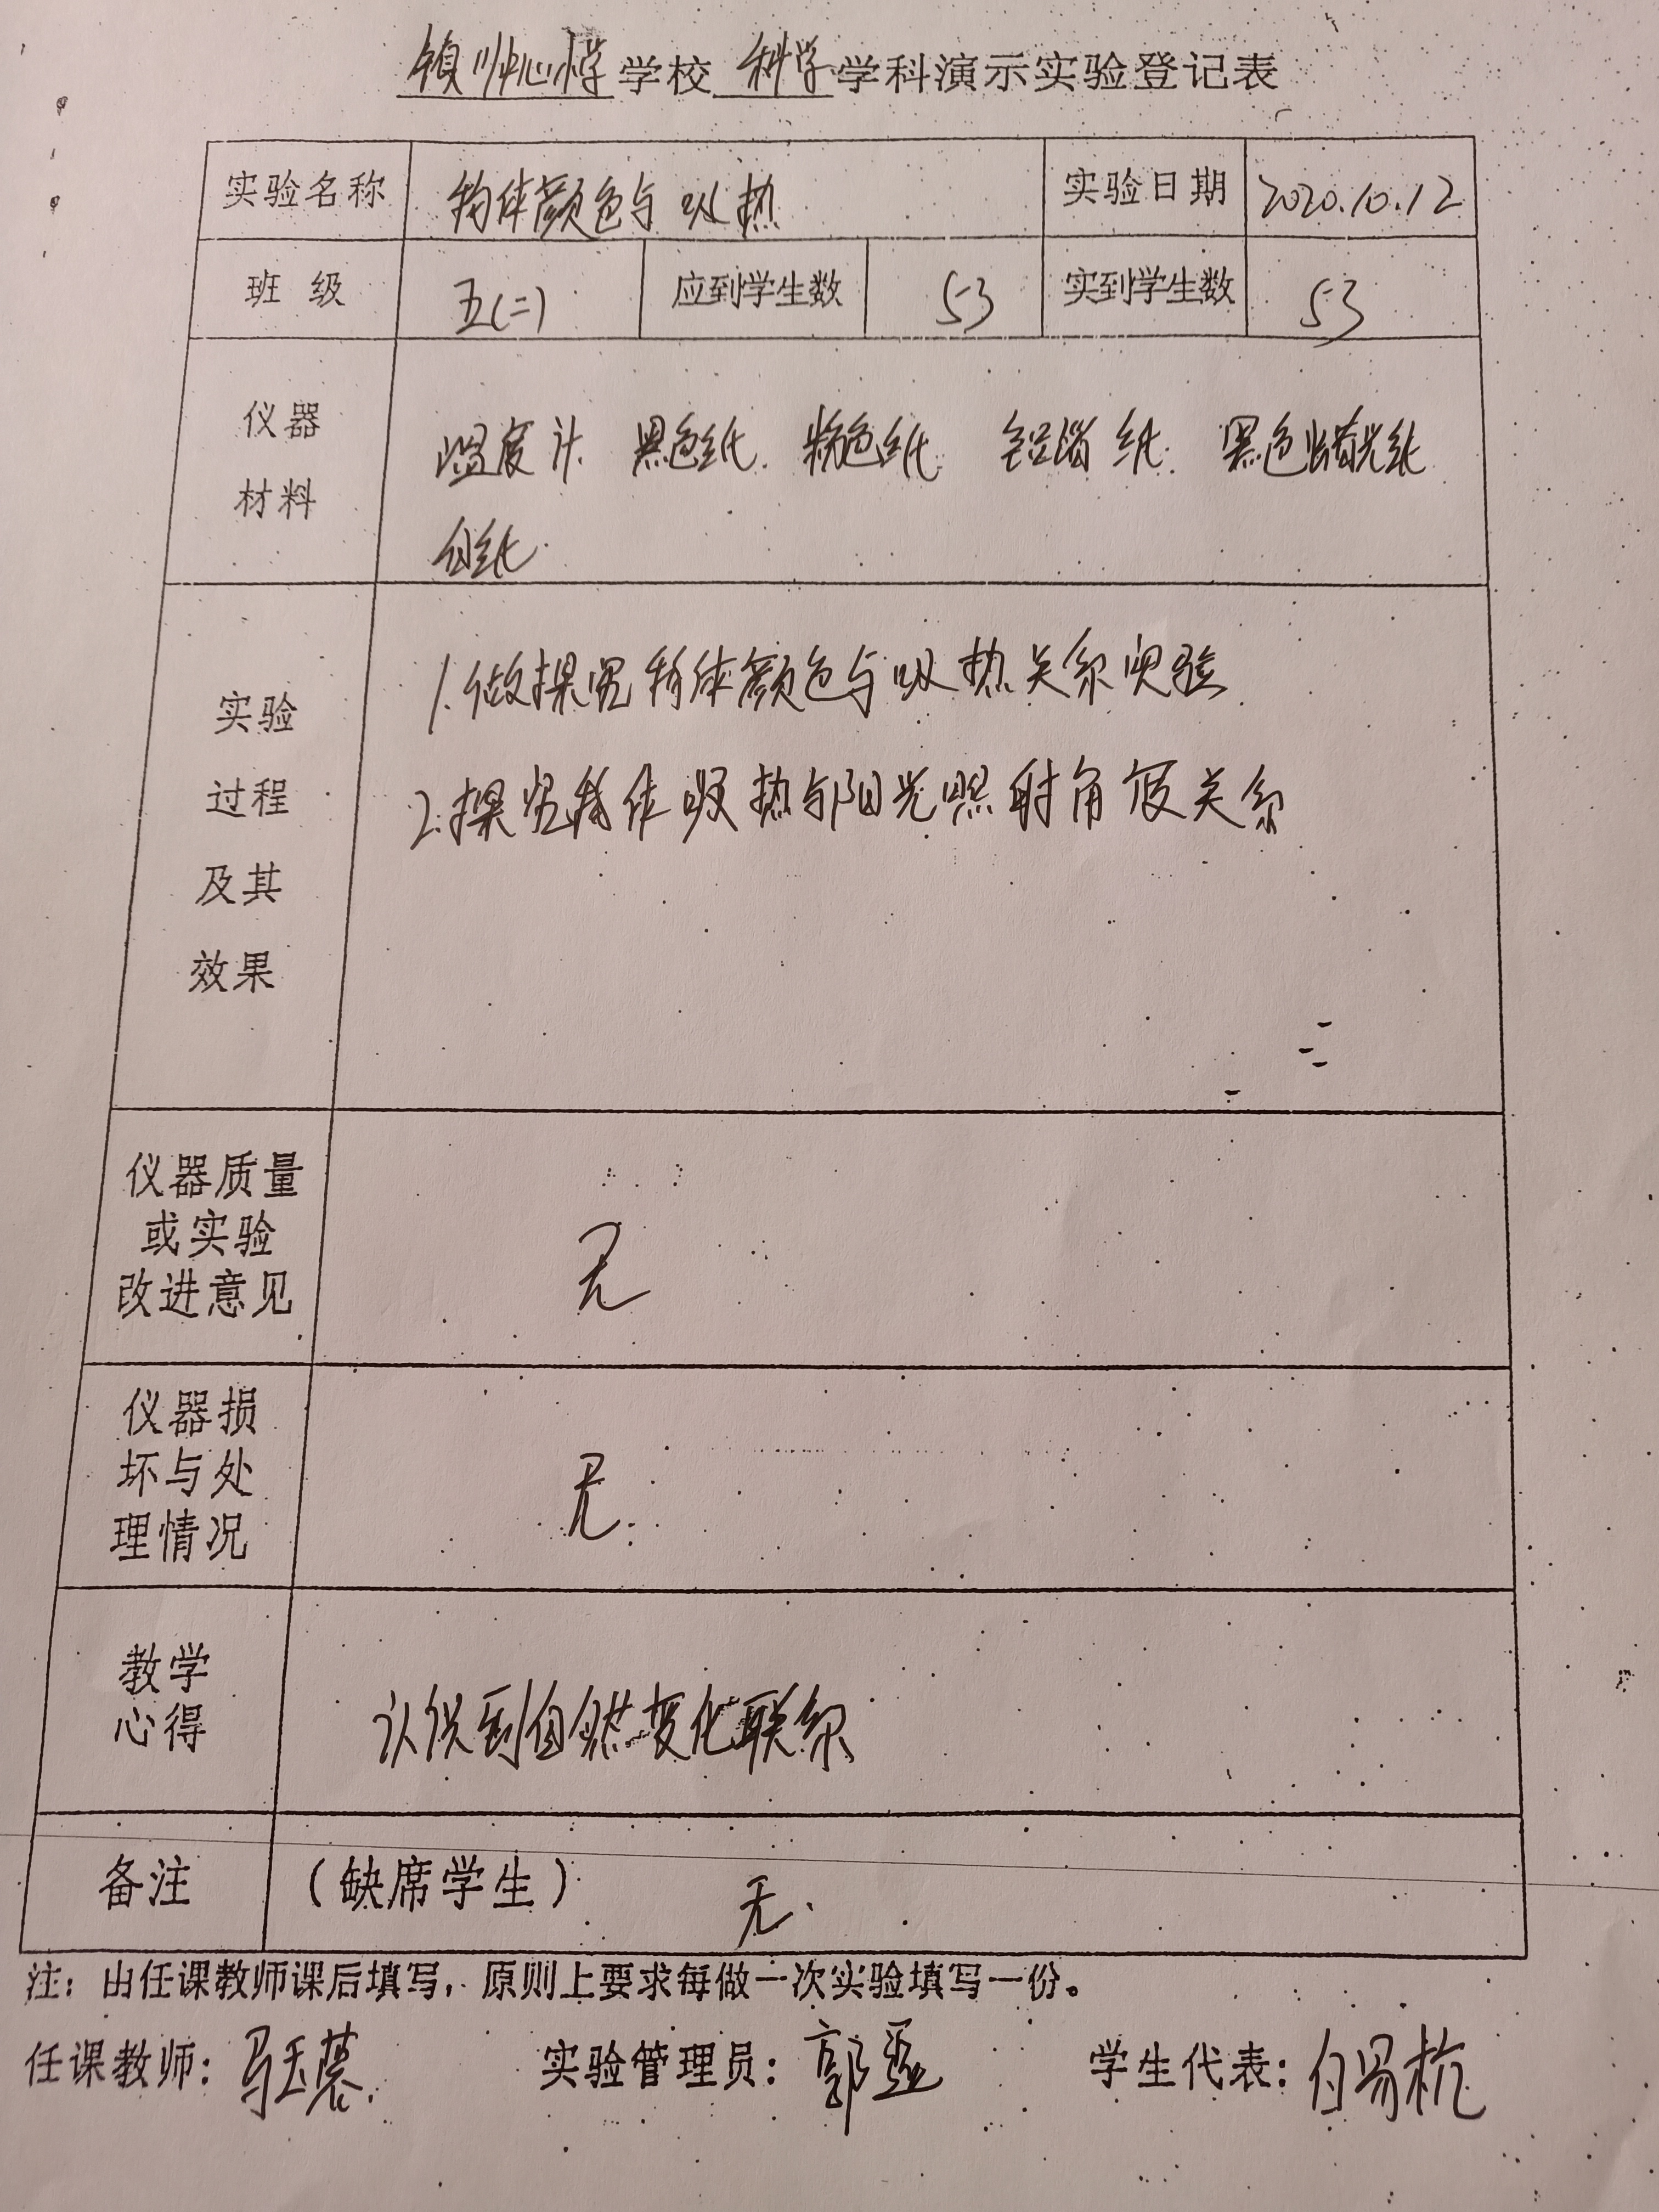 中心小学 学校 科学 学科演示实验登记表
实验名称 物体颜色与吸热 实验日期 2020.10.12
班 级 五(二) 应到学生数 53 实到学生数 53
仪器
材料
温度计 黑色纸. 粉色纸. 铝箔纸. 黑色蜡光纸
白纸.
实验
过程
及其
效果
1.做探究物体颜色与吸热关系实验.
2.探究物体吸热与阳光照射角度关系
仪器质量
或实验
改进意见
无
仪器损
坏与处
理情况
无.
教学
心得
认识到自然变化联系
备注 (缺席学生) 无.
注: 由任课教师课后填写, 原则上要求每做一次实验填写一份。
任课教师: 马玉 实验管理员: 郭 学生代表: 白易杭